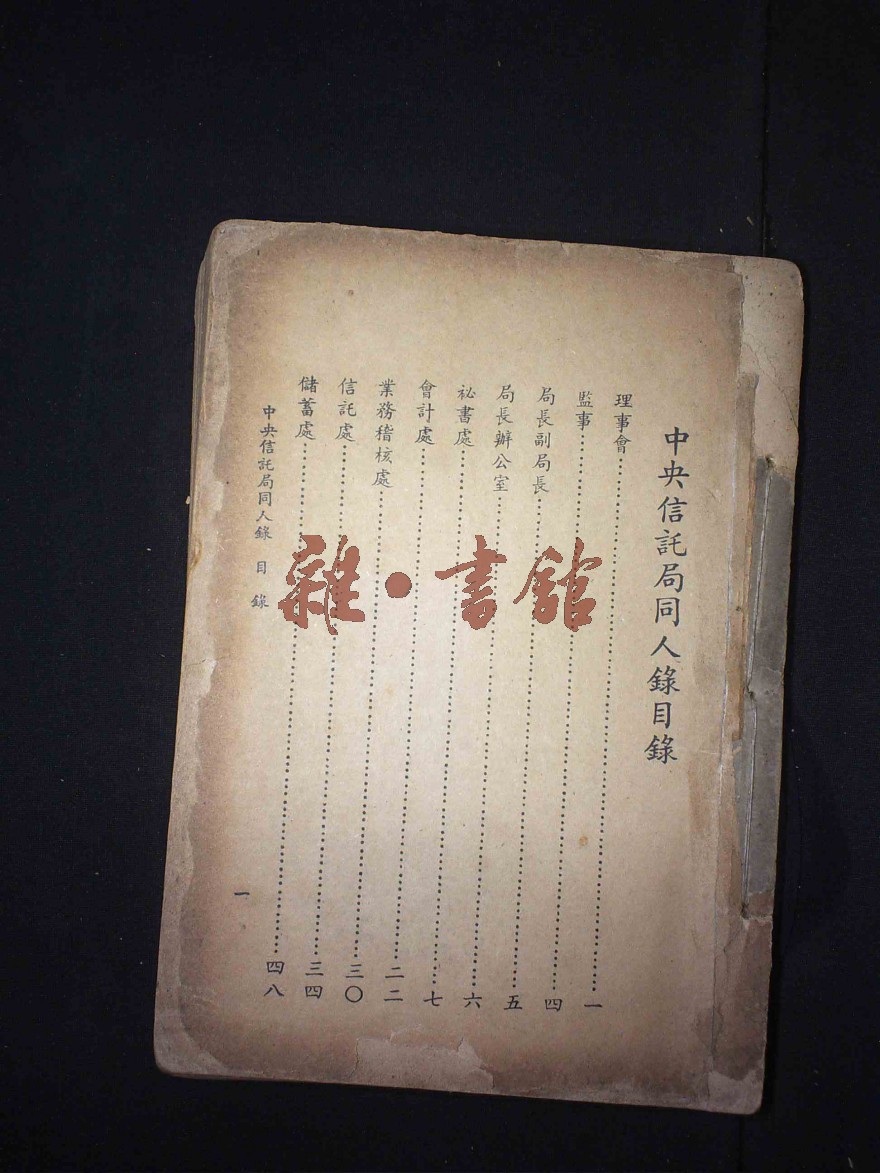 中央信託局同人錄目錄
理事會⋯⋯一
監事⋯⋯四
局長副局長⋯⋯五
局長辦公室⋯⋯六
祕書處⋯⋯七
會計處⋯⋯二二
業務稽核處⋯⋯三〇
信託處⋯⋯三四
儲蓄處⋯⋯四八
中央信託局同人錄 目錄 一
雜·書館